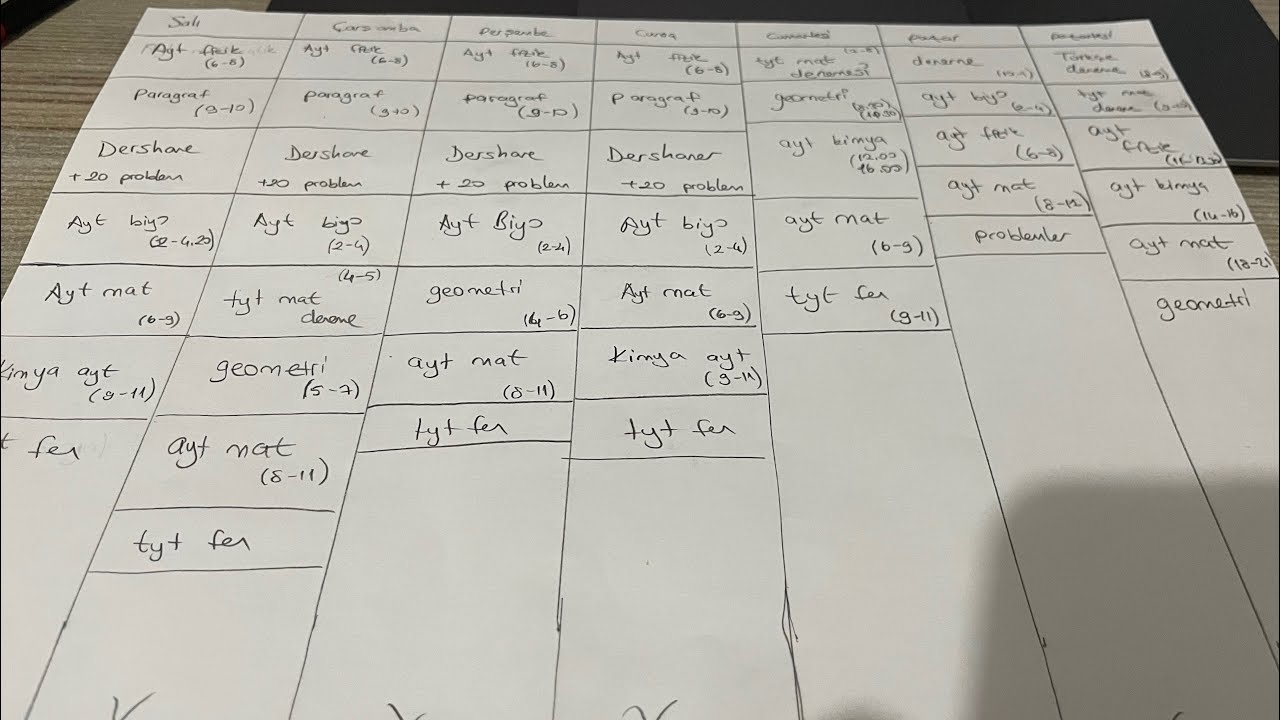 Salı
Ayt fizik
(6-8)
Paragraf
(9-10)
Dershane
+20 problem
Ayt biyo
(2-4.20)
Ayt mat
(6-9)
kimya ayt
(9-11)
t fen
Çarşamba
Ayt fizik
(6-8)
paragraf
(9-10)
Dershane
+20 problem
Ayt biyo
(2-4)
(4-5)
tyt mat
deneme
geometri
(5-7)
ayt mat
(8-11)
tyt fen
Perşembe
Ayt fizik
(6-8)
paragraf
(9-10)
Dershane
+ 20 problem
Ayt Biyo
(2-4)
geometri
(4-6)
ayt mat
(8-11)
tyt fen
Cuma
Ayt fizik
(6-8)
Paragraf
(9-10)
Dershaner
+20 problem
Ayt biyo
(2-4)
Ayt mat
(6-9)
Kimya ayt
(9-11)
tyt fen
Cumartesi
tyt mat
denemesi
geometri
ayt kimya
(12.00
16.00)
ayt mat
(6-9)
tyt fen
(9-11)
pazar
deneme
ayt biyo
(2-4)
ayt fizik
(6-8)
ayt mat
(8-12)
problemler
pazartesi
Türkçe
deneme
tyt mat
deneme
ayt
fizik
ayt kimya
(14-16)
ayt mat
(18-21)
geometri